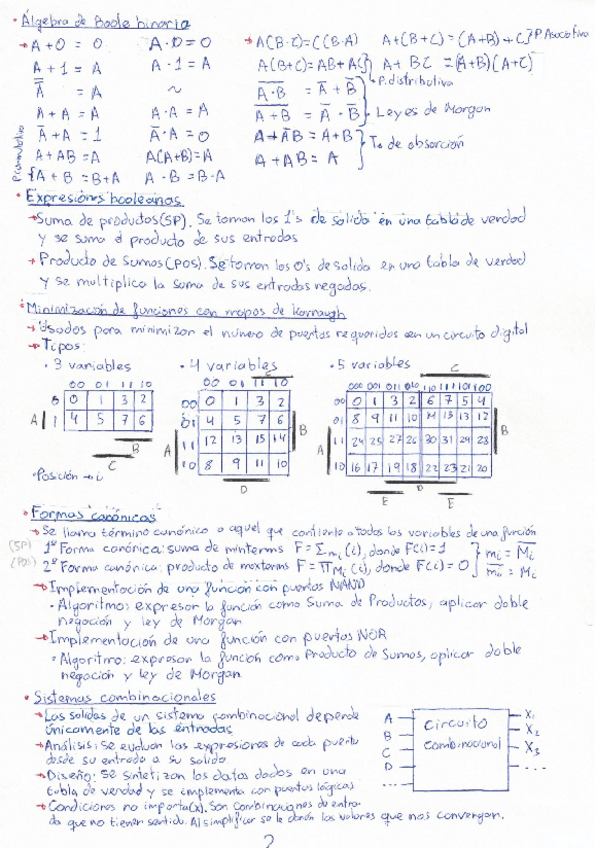 • Álgebra de Boole binaria
→ A + 0 = 0   A · 0 = 0   → A(B·C) = C(B·A)   A + (B + C) = (A + B) + C } P. Asociativa
A + 1 = A   A · 1 = A   A(B+C) = AB + AC } A + BC = (A+B)(A+C)
P. distributiva
A̿ = A   ~   \overline{A·B} = A̅ + B̅
A + A = A   A · A = A   \overline{A + B} = A̅ · B̅ } Leyes de Morgan
A̅ + A = 1   A̅ · A = 0   A + A̅B = A + B
A + AB = A   A(A+B) = A   A + AB = A } Tª de absorción
P. conmutativa { A + B = B + A   A · B = B · A
• Expresiones booleanas
→ Suma de productos (SP). Se toman los 1's de salida en una tabla de verdad
y se suma el producto de sus entradas
→ Producto de Sumas (POS). Se toman los 0's de salida en una tabla de verdad
y se multiplica la suma de sus entradas negadas.
• Minimización de funciones con mapas de Karnaugh
→ Usados para minimizar el número de puertas requeridas en un circuito digital
→ Tipos:
· 3 variables   · 4 variables   · 5 variables
C   C
00 01 11 10   00 01 11 10   000 001 011 010 110 111 101 100
0 0 1 3 2   00 0 1 3 2   00 0 1 3 2 6 7 5 4
A 1 4 5 7 6   01 4 5 7 6   01 8 9 11 10 14 15 13 12
B   A 11 12 13 15 14 B   A 11 24 25 27 26 30 31 29 28 B
C   10 8 9 11 10   10 16 17 19 18 22 23 21 20
· Posición → i   D   D
E   E
• Formas canónicas
→ Se llama término canónico a aquel que contiene a todas las variables de una función
(SP) 1ª Forma canónica: suma de minterms F = Σ mi (i), donde F(i) = 1 } mi = \overline{Mi}
(POS) 2ª Forma canónica: producto de maxterms F = Π Mi (i), donde F(i) = 0 } \overline{mi} = Mi
→ Implementación de una función con puertas NAND
· Algoritmo: expresar la función como Suma de Productos, aplicar doble
negación y ley de Morgan
→ Implementación de una función con puertas NOR
· Algoritmo: expresar la función como Producto de Sumas, aplicar doble
negación y ley de Morgan
• Sistemas combinacionales
→ Las salidas de un sistema combinacional depende
únicamente de las entradas
→ Análisis: Se evaluan las expresiones de cada puerta
desde su entrada a su salida
→ Diseño: Se sintetizan los datos dados en una
tabla de verdad y se implementa con puertas lógicas
→ Condiciones no importa(x). Son combinaciones de entra-
da que no tienen sentido. Al simplificar se le darán los valores que nos convengan.
A   circuito   X1
B   combinacional   X2
C   X3
D   ...
...
2